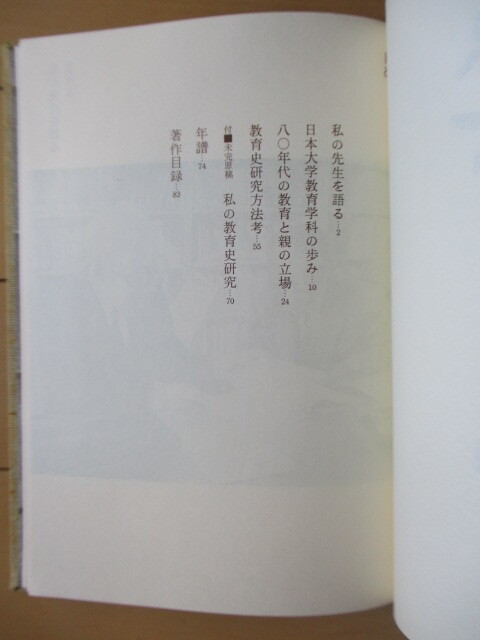 私の先生を語る…2
日本大学教育学科の歩み…10
八〇年代の教育と親の立場…24
教育史研究方法考…55
付■未完原稿 私の教育史研究…70
年譜…74
著作目録…82